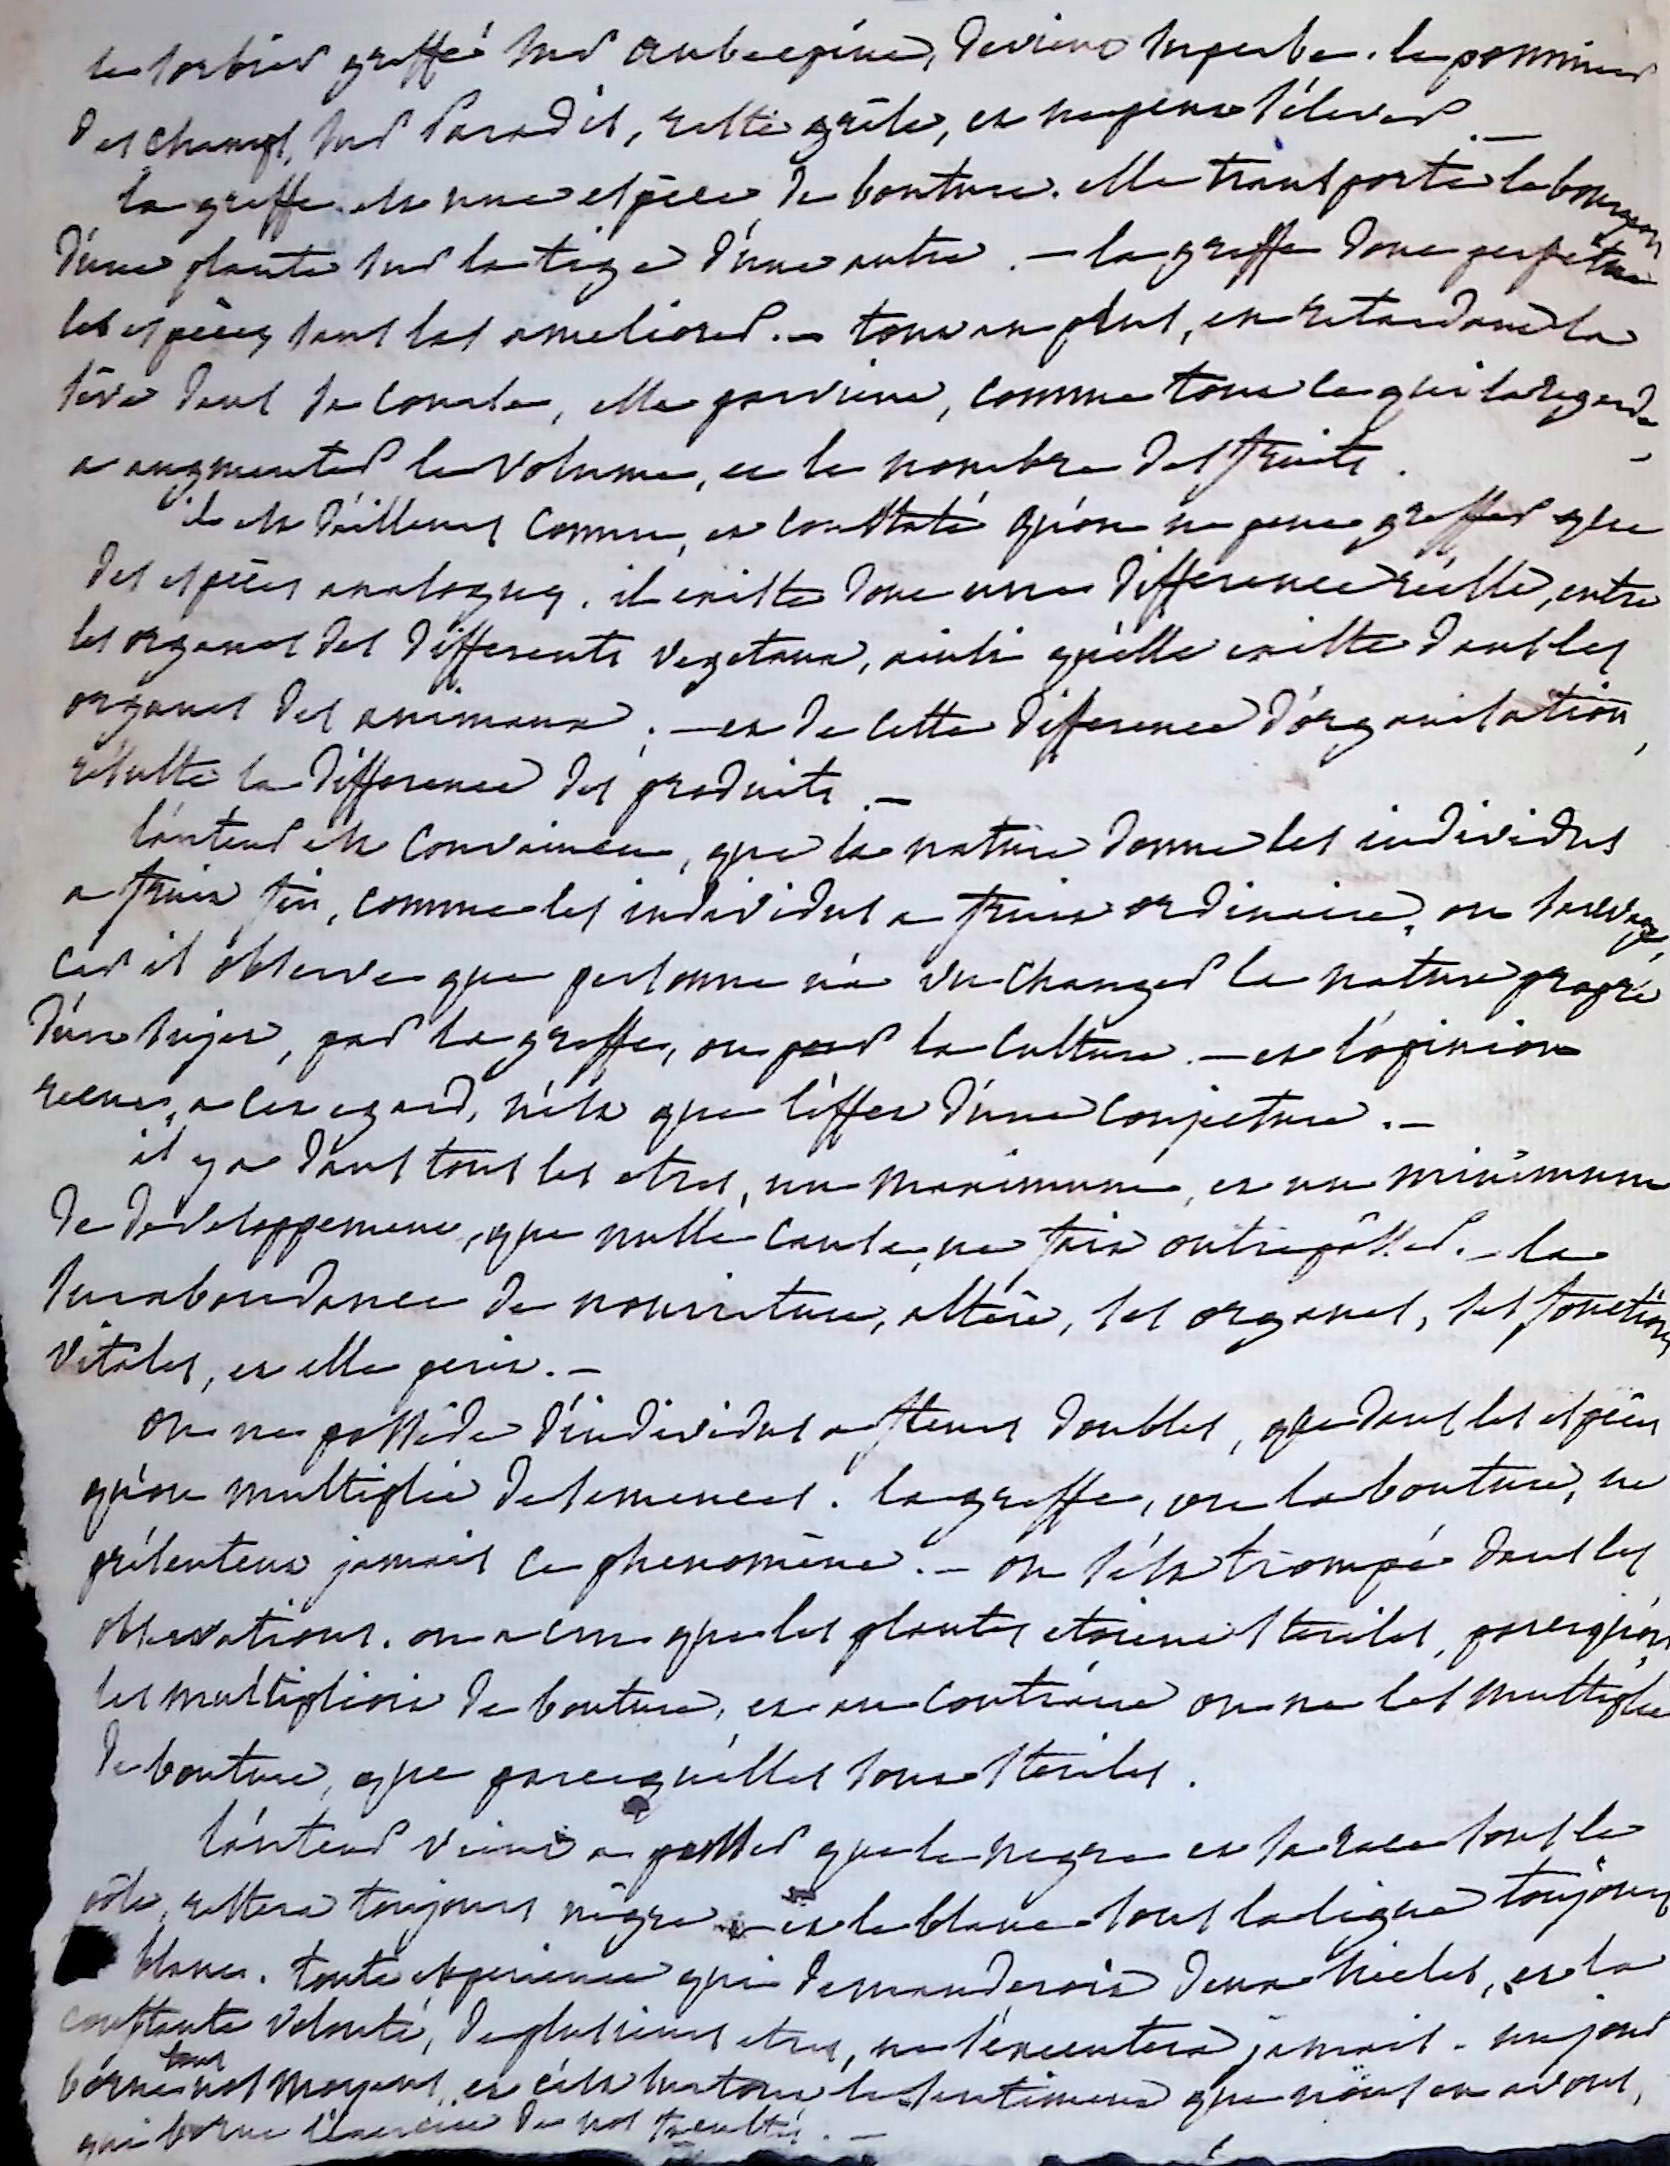 le sorbier greffé sur aubepine, devient superbe. le pommier
des champs, sur Paradis, reste grêle, et ne peut s'élever. —
la greffe est une espèce de bouture. elle transporte le bourgeon
d'une plante sur la tige d'une autre. — la greffe donc perpetue
les espèces sans les ameliorer. — tout au plus, en retardant la
sève dans sa course, elle parvient, comme tout ce qui la regarde,
a augmenter le volume, et le nombre des fruits.
il est d'ailleurs connu, et constaté qu'on ne peut greffer que
des espèces analogues. il existe donc une difference réelle, entre
les organes des differents vegetaux, ainsi qu'elle existe dans les
organes des animaux; — et de cette difference d'organisation,
résulte la difference des produits. —
l'auteur est convaincu, que la nature donne les individus
a fruit fin, comme les individus a fruit ordinaire, ou sauvage,
car il observe que personne n'a vu changer la nature propre
d'un sujet, par la greffe, ou par la culture. — et l'opinion
recue, a cet egard, n'est que l'effet d'une conjecture. —
il y a dans tous les etres, un maximum, et un minimum
de developpement, que nulle cause, ne fait outrepâsser. — la
surabondance de nourriture, altère, les organes, les fonctions
vitales, et elle perit. —
on ne possède d'individus a fleurs doubles, que dans les espèces
qu'on multiplie de semences. la greffe, ou la bouture, ne
présentent jamais ce phenomène. — on s'est trompé dans les
observations. on a cru que les plantes etoient steriles, parcequ'on
les multiplioit de bouture, et au contraire on ne les multiplie
de bouture, que parcequ'elles sont steriles.
l'auteur vient a penser que le negre et sa race sous le
pôle, restera toujours nègre — et le blanc sous la ligne toujours
blanc. toute experience qui demanderoit deux siecles, et la
constante volonté, de plusieurs etres, ne s'executera jamais. un jour
borne tous nos moyens, et c'est surtout le sentiment que nous en avons,
qui borne l'exercice de nos facultés. —